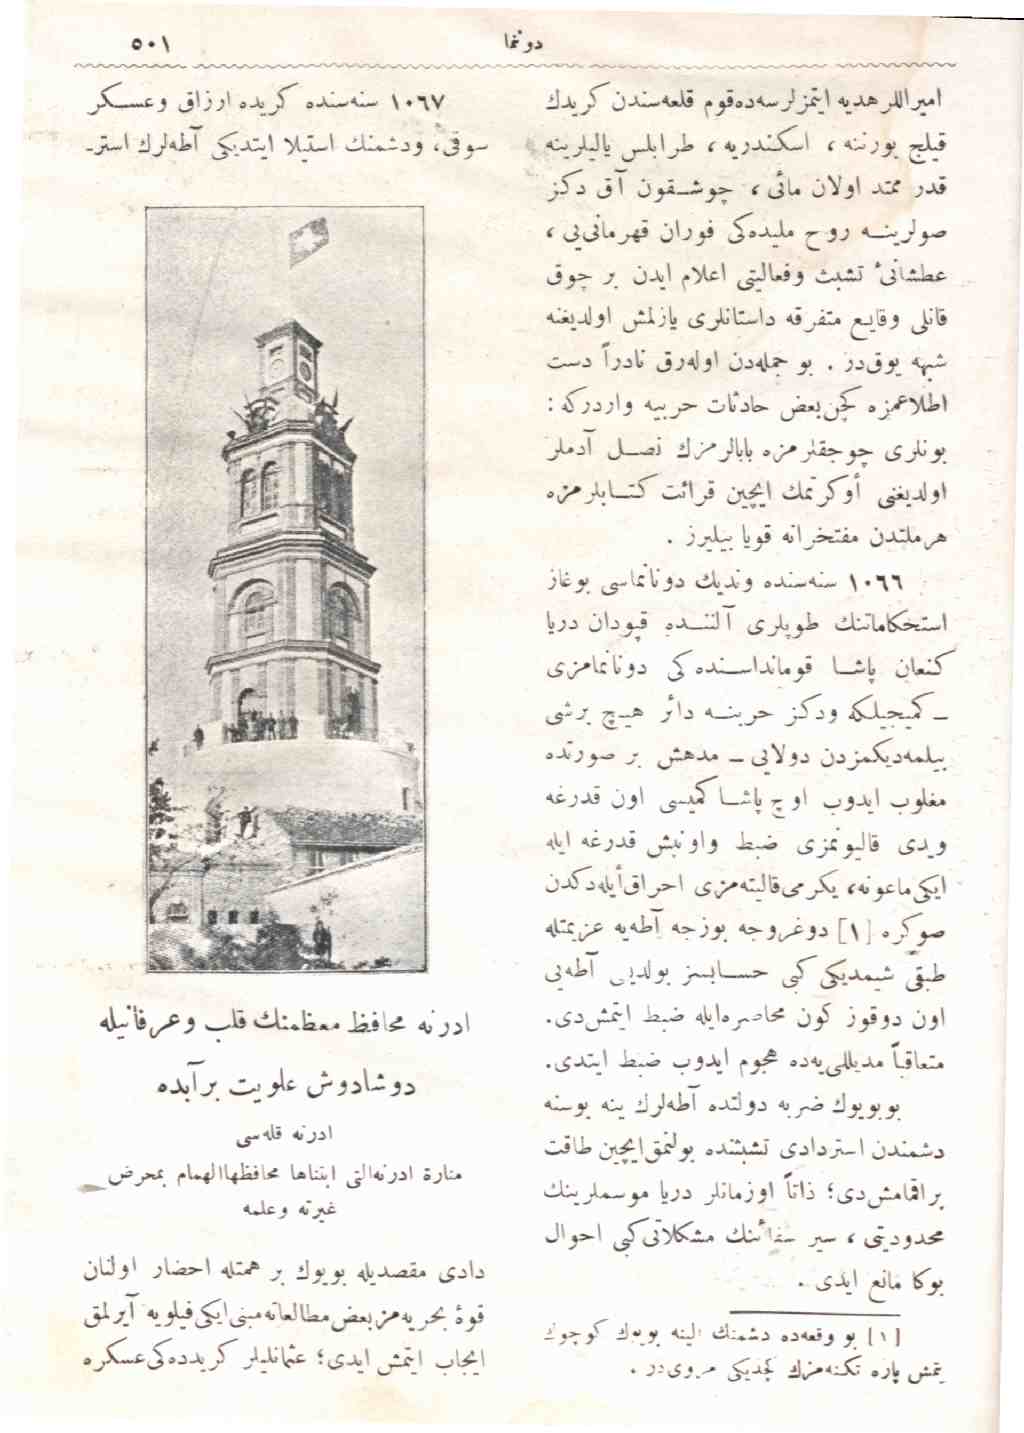 دونما
٥٠١
اميراللر هديه ايتمزلرسه‌ده‌قوم قلعه‌سندن كريدك
قيلج بورننه ، اسكندريه ، طرابلس ياليلرينه
قدر ممتد اولان مائى ، جوشـقون آق دكز
صولرينــه روح مليده‌كى فوران قهرمانى‌يى ،
عطشانىٔ تشبث وفعاليتى اعلام ايدن بر چوق
قانلى وقايـع متفرقه داستانلرى يازلمش اولديغنه
شبهه يوق‌در . بو جمله‌دن اوله‌رق نادراً دست
اطلاعمزه كچن‌بعض حادثات حربيه واردركه :
بونلرى چوجقلرمزه بابالرمزك نصـل آدملر
اولديغنى أوكرتمك ايچين قرائت كتـابلرمزه
هرملتدن مفتخرانه قويا بيليرز .
١٠٦٦ سنه‌سنده ونديك دونانماسى بوغاز
استحكاماتنك طوپلرى آلتنـده قپودان دريا
كنعان پاشـا قومانداسـنده‌كى دونانمامزى
ــ كميجيلكه ودكز حربنــه دائر هيـچ برشى
بيلمه‌ديكمزدن دولايى ــ مدهش بر صورتده
مغلوب ايدوب اوچ پاشـا كميسى اون قدرغه
ويدى قاليونمزى ضبط واونبش قدرغه ايله
ايكى‌ماعونه، يكرمى‌قاليته‌مزى احراق‌أيله‌دكدن
صوكره [١] دوغروجه بوزجه آطه‌يه عزيمتله
طبقى شيمديكى كبى حسـابسز بولديى آطه‌يى
اون دوقوز كون محاصره‌ايله ضبط ايتمش‌دى.
متعاقباً مديللى‌يه‌ده هجوم ايدوب ضبط ايتدى.
بوبويوك ضربه دولتده آطه‌لرك ينه بوسنه
دشمندن استردادى تشبثنده بولنمق‌ايچين طاقت
براقمامش‌دى؛ ذاتاً اوزمانلر دريا موسملرينك
محدوديتى ، سير سفائنك مشكلاتى‌كبى احوال
بوكا مانع ايدى .
[١] بو وقعه‌ده دشمنك الينه بويوك كوچوك
يتمش پاره تكنه‌مزك كچديكى مروى‌در .
١٠٦٧ سنه‌سنده كريده ارزاق وعسـكر
سوقى، ودشمنك استيلا ايتديكى آطه‌لرك استر-
ادرنه محافظ معظمنك قلب وعرفانيله
دوشادوش علويت برآبده
ادرنه قله‌سى
منارة ادرنه‌التى ابتناها محافظهاالهمام بمحرض
غيرته وعلمه
دادى مقصديله بويوك بر همتله احضار اولنان
قوهٔ بحريه‌مز بعض مطالعاته‌مبنى‌ايكى‌فيلويه آيرلمق
ايجاب ايتمش ايدى؛ عثمانليلر كريدده‌كى‌عسكره